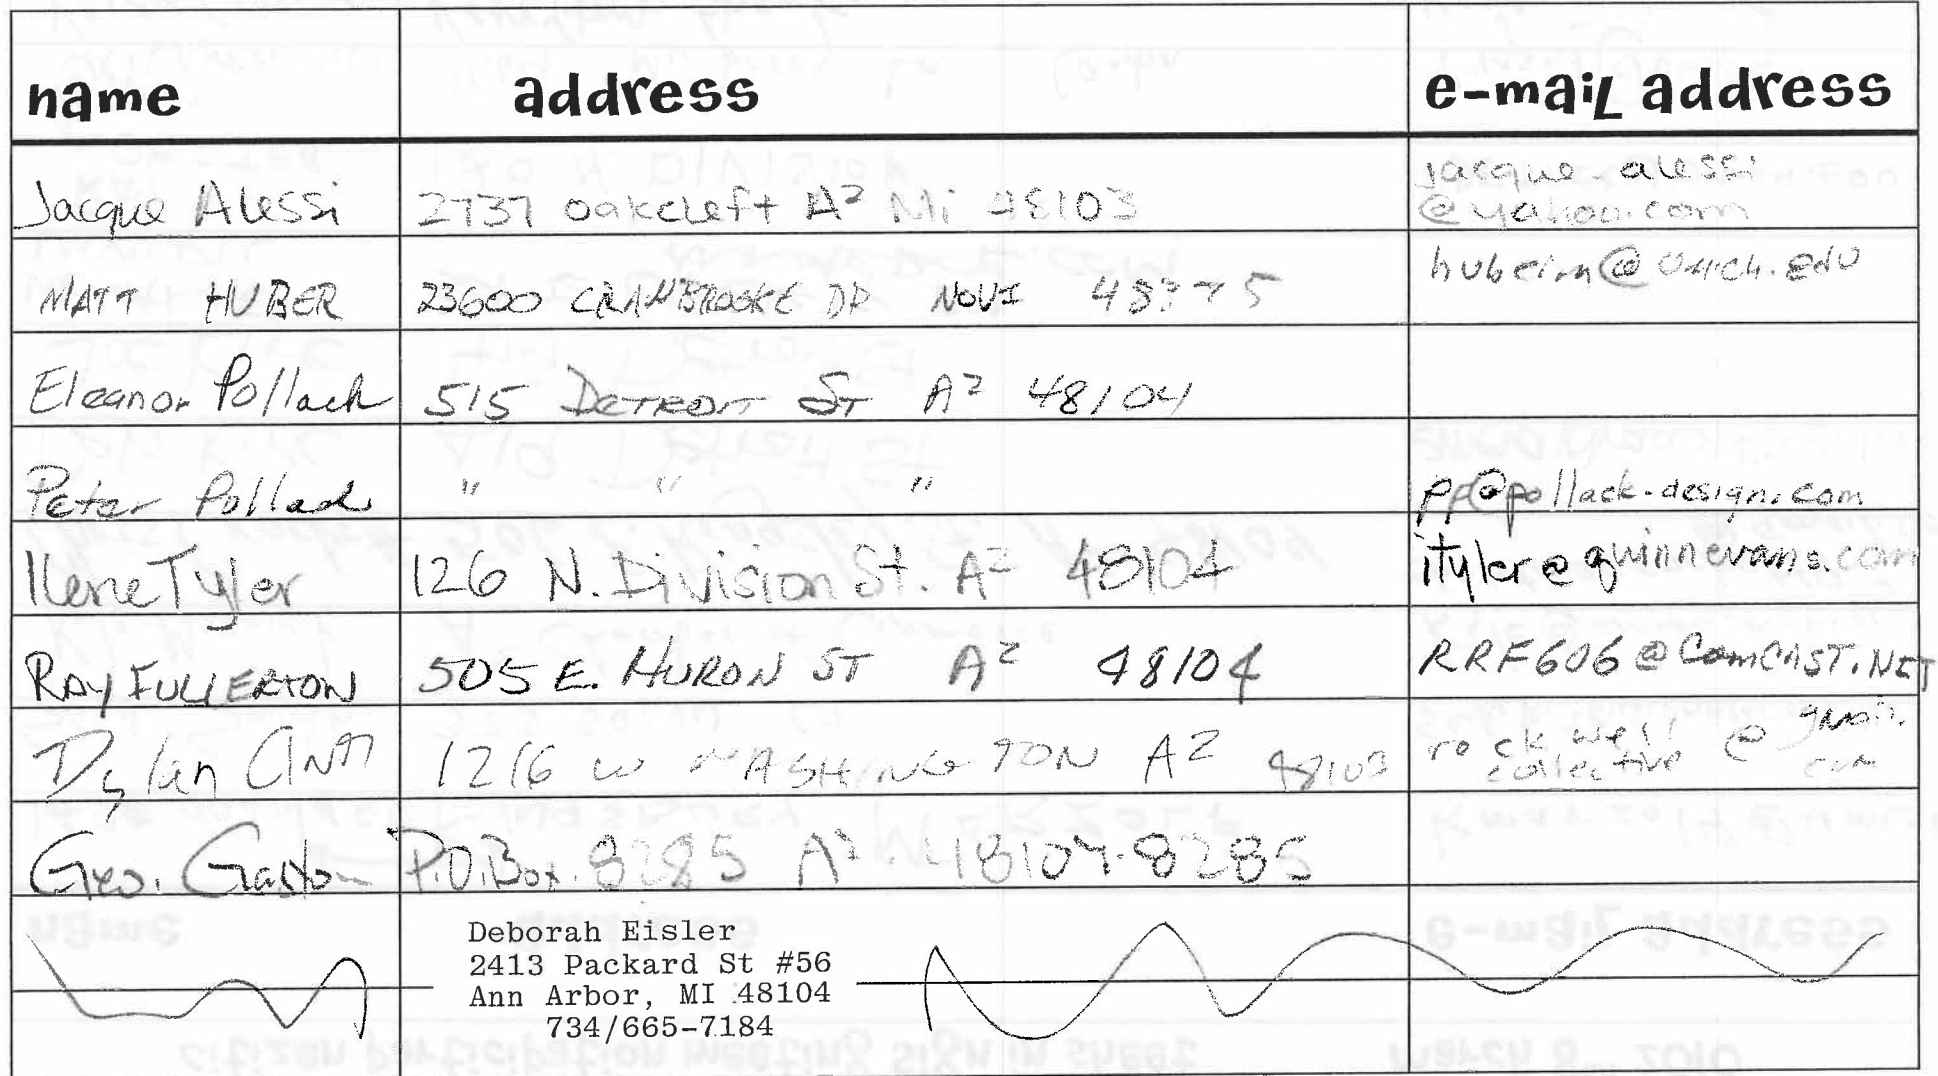 name address e-mail address
Jacque Alessi 2737 Oakcleft A² Mi 48103 jacque-alessi
@yahoo.com
MATT HUBER 23600 CRANBROOKE DR NOVI 48375 huberm@umich.edu
Eleanor Pollack 515 DETROIT ST A² 48104
Peter Pollack " " " pp@pollack-design.com
Ilene Tyler 126 N. Division St. A² 48104 ityler@quinnevans.com
RAY FULLERTON 505 E. HURON ST A² 48104 RRF606@COMCAST.NET
Dylan 1216 W WASHINGTON A2 48103 rockwell
collective @ gmail.
com
Geo. Gaston P.O.Box.8285 A². 48107-8285
Deborah Eisler
2413 Packard St #56
Ann Arbor, MI 48104
734/665-7184
name address e-mail address
citizen participation meeting sign in sheet march 2010